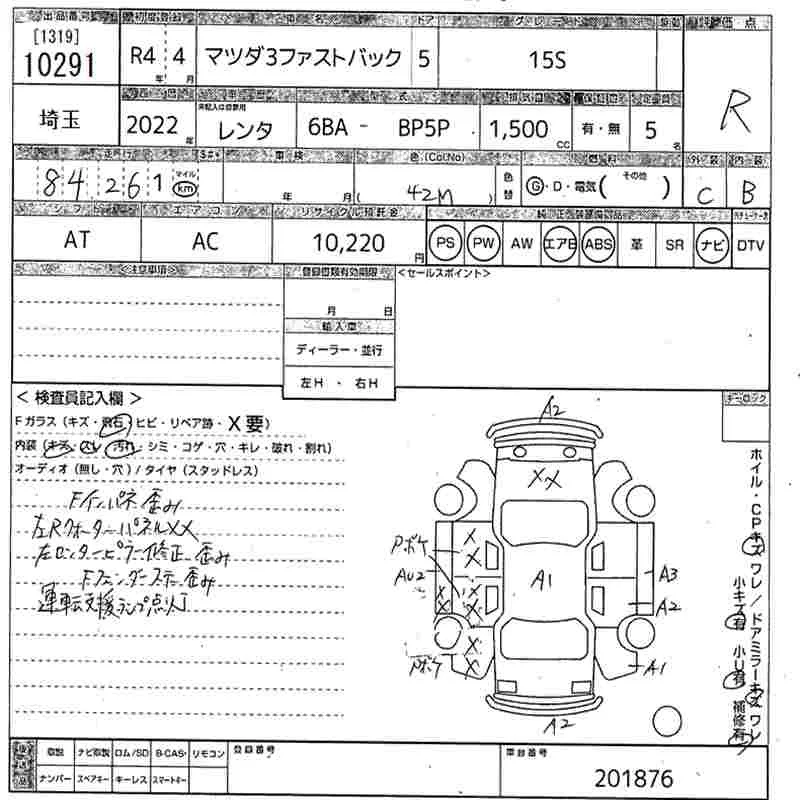 出品番号 初度登録 車名 ドア グレード 評価点
[1319]
10291 R4年 4月 マツダ3ファストバック 5 15S R
埼玉
車歴 型式 排気量 定員
未記入は自家用
2022年 レンタ 6BA - BP5P 1,500cc 有・無 5名
走行 車検 色(Col No) 燃料 外装 内装
84 261 マイル km 年 月 ( 42M ) 色替 G・D・電気( その他 ) C B
シフト エアコン リサイクル預託金 純正装備品
AT AC 10,220円 PS PW AW エアB ABS 革 SR ナビ DTV
<注意事項> 登録書類有効期限 <セールスポイント>
月 日
輸入車
ディーラー・並行
左H ・ 右H
<検査員記入欄> キーロック
Fガラス(キズ・飛石・ヒビ・リペア跡・X要)
内装(キズ・スレ・汚れ・シミ・コゲ・穴・キレ・破れ・割れ)
オーディオ(無し・穴)/タイヤ(スタッドレス)
Fインパネ歪み
左RクォーターパネルXX
左センターピラー修正、歪み
Fフェンダーステー歪み
運転支援ランプ点灯
A2
XX
X
Pボケ X
AU2 A1 A3
X X
X X A2
X
Pボケ X A1
A2
ホイル・CPキズ ワレ/ドアミラーキズ ワレ
小キズ有 小U有 補修有
後送品 取説 ナビ取説 ロム/SD B-CAS リモコン 登録番号 車台番号
ナンバー スペアキー キーレス スマートキー 201876